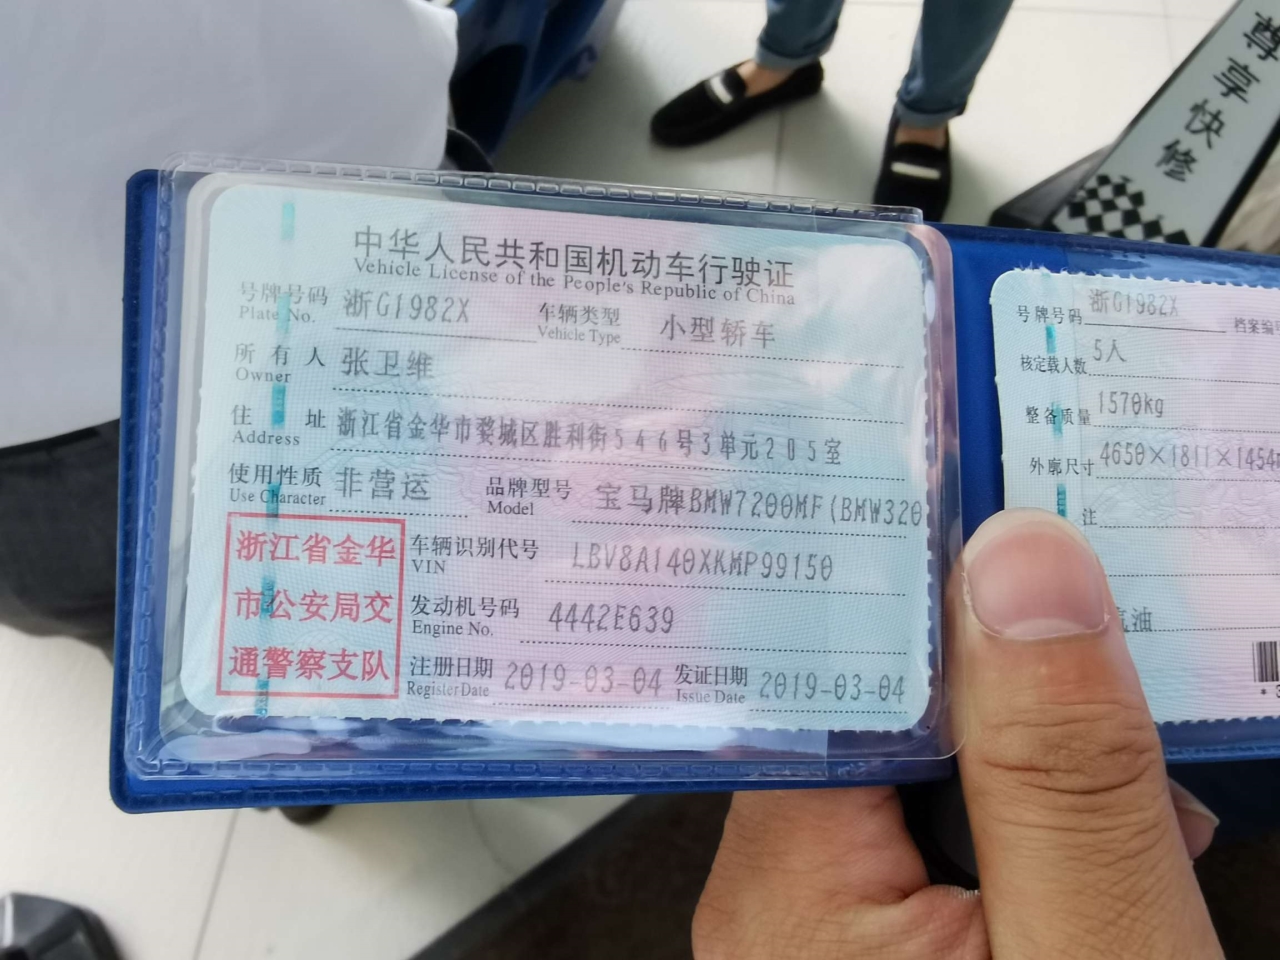 尊享快修
中华人民共和国机动车行驶证
Vehicle License of the People's Republic of China
号牌号码 浙G1982X 车辆类型 小型轿车
Plate No. Vehicle Type
所有人 张卫维
Owner
住址 浙江省金华市婺城区胜利街546号3单元205室
Address
使用性质 非营运 品牌型号 宝马牌BMW7200MF(BMW320
Use Character Model
浙江省金华
市公安局交
通警察支队
车辆识别代号 LBV8A140XKMP99150
VIN
发动机号码 4442E639
Engine No.
注册日期 2019-03-04 发证日期 2019-03-04
Register Date Issue Date
号牌号码 浙G1982X 档案编
核定载人数 5人
整备质量 1570kg
外廓尺寸 4650×1811×1454
注
油